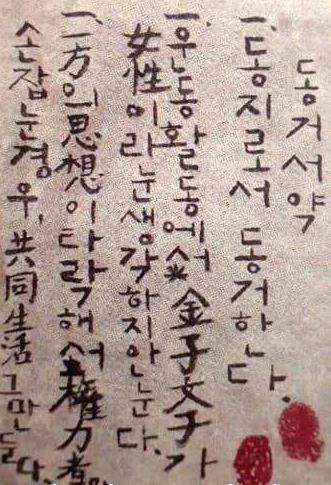 동거서약
一. 동지로서 동거한다.
一. 운동활동에서 金子文子가
女性이라는생각하지안는다.
一. 一方의思想이타락해서 權力者와
손잡는경우, 共同生活그만둔다.